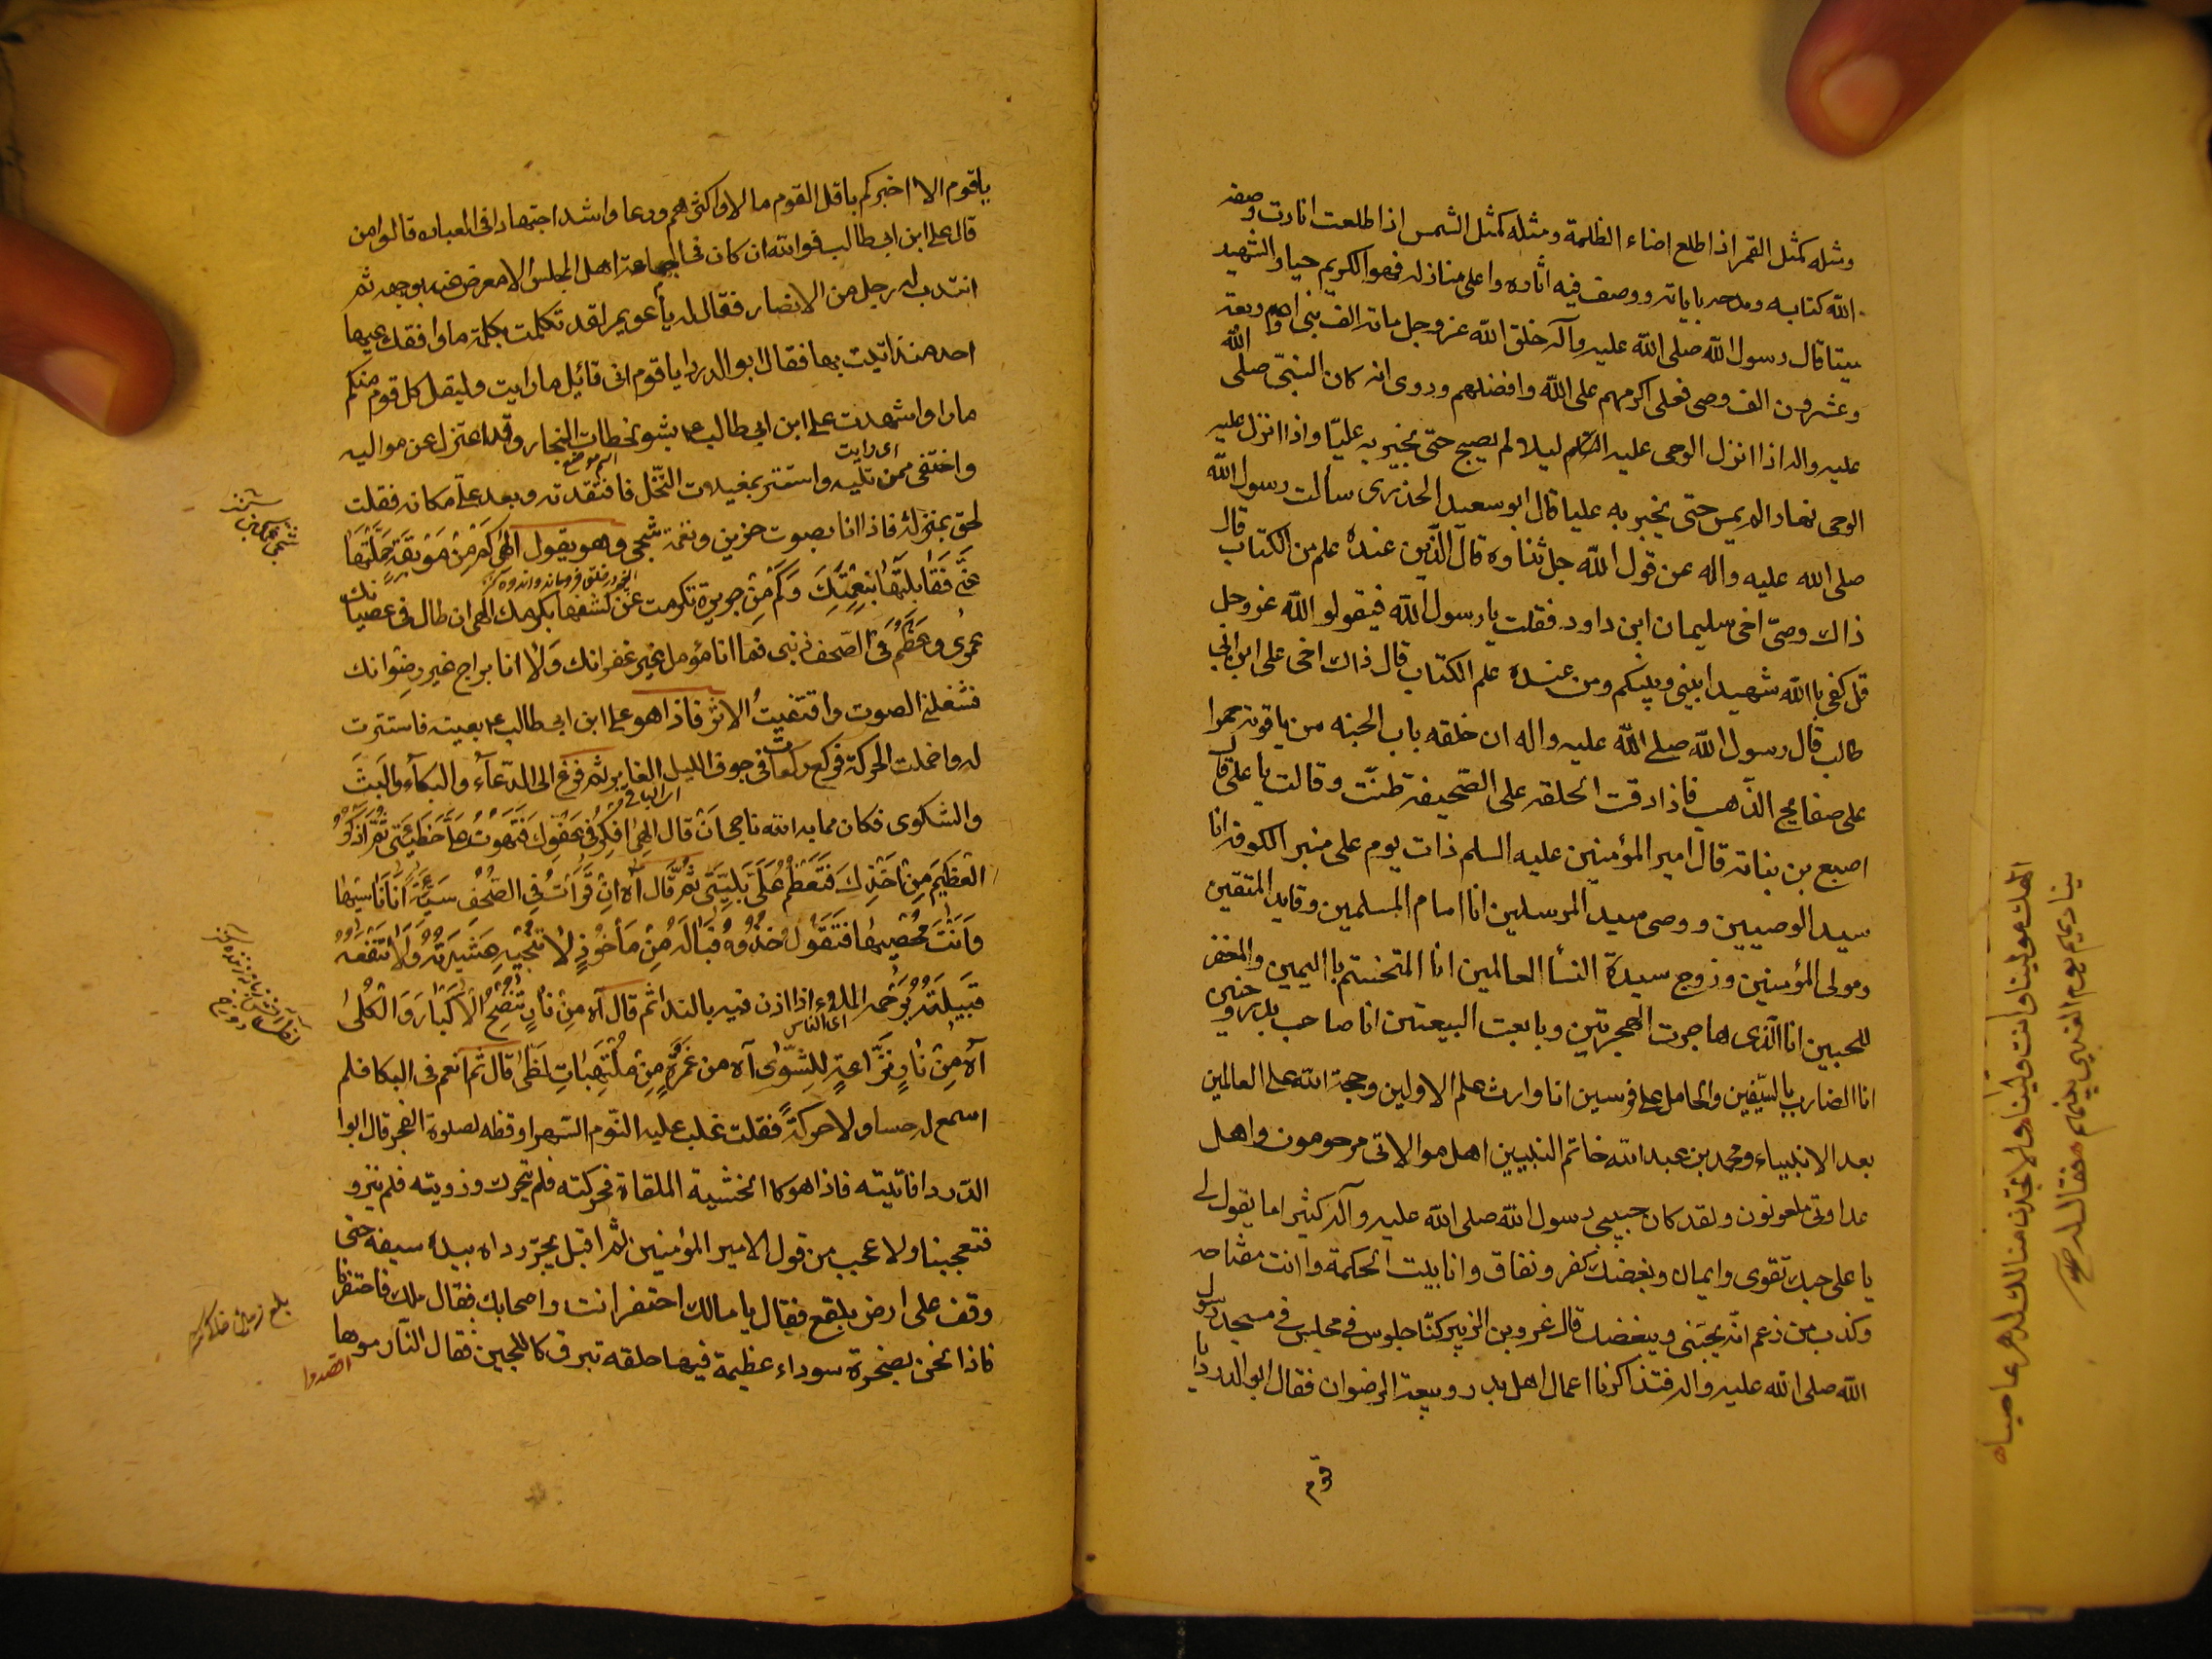 ومثله كمثل القمر اذا طلع اضاء الظلمة ومثله كمثل الشمس اذا طلعت انارت وصفه
الله كتابه ومدحه باياته ووصف فيه اثاره واعلى منازله فهو الكريم حيا والشهيد
ميتا قال رسول الله صلى الله عليه وآله خلق الله عز وجل مائه الف نبى اربعة
وعشرون الف وصى فعلى اكرمهم على الله وافضلهم وروى انه كان النبى صلى الله
عليه واله اذا انزل الوحى عليه ليلا لم يصبح حتى يخبر به عليّا واذا انزل عليه
الوحى نهارا لم يمس حتى يخبر به عليا قال ابو سعيد الخذرى سالت رسول الله
صلى الله عليه واله عن قول الله جل ثناوه قال الّذين عنده علم من الكتاب قال
ذاك وصىّ اخى سليمان ابن داود فقلت يا رسول الله فيقولو الله عز وجل
قل كفى باالله شهيدا بينى وبينكم ومن عنده علم الكتاب قال ذاك اخى على ابن ابى
طالب قال رسول الله صلى الله عليه واله ان خلقه باب الجنه من ياقوته حمرا
على صفايح الذّهب فاذا دقت الحلقه على الصّحيفه طنّت وقالت يا على قال
اصبع بن بناته قال امير المؤمنين عليه السلم ذات يوم على منبر الكوفه انا
سيد الوصيين ووصى سيد المرسلين انا امام المسلمين وقايد المتقين
ومولى المؤمنين وزوج سيدة النسأ العالمين انا المتخنتم با اليمين والمعفر
للجبين انا الّذى هاجرت الهجرتين وبايعت البيعتين انا صاحب بدر وحنين
انا الضارب بالسّيفين والحامل على فرسين انا وارث علم الاولين وحجة الله على العالمين
بعد الانبياء ومحمد بن عبد الله خاتم النبيين اهل موالاتى مرحومون واهل
عداوتى ملعونون ولقد كان حبيبى رسول الله صلى الله عليه وآله كثيرا ما يقول لى
يا على حبك تقوى وايمان وبغضك كفر ونفاق وانا بيت الحكمة وانت مفتاحه
وكذب من زعم انّه يحبّنى ويبغضك قال عروبن الزبير كنّا جلوس فى مجلس فى مسجد رسول
الله صلى الله عليه واله فتذاكرنا اعمال اهل بدر وبيعة الرضوان فقال ابو الدردا يا
قوم
ياقوم الا اخبركم باقل القوم مالا واكثرهم ورعا واشد اجتهادا فى العباده قالوا من
قال على ابن ابى طالب فوالله ان كان فى الجماعة اهل المجلس الا معرض عنه بوجهه ثم
انتدب له رجل من الانصار فقال له يا عويمر لقد تكلمت بكلمة ما وافقك عليها
احد منذ اتيت بها فقال ابو الدردا يا قوم انى قائل ما رايت وليقل كل قوم منكم
ما راوا شهدت على ابن ابى طالب ع بشويحطات النجار وقد اعتزل عن مواليه
اى رايت
اسم موضع
واختفى ممن تليه واستتر بمغيلات النّخل فافتقدته وبعد علىّ مكانه فقلت
لحق بمنزله فاذا انا بصوت حزين ونغمة شجى وهو يقول الهى كم من موبقة حملتها
عنّى فقابلتها بنعمتك وكم من جريرة تكرمت عن كشفها بكرمك الهى ان طال فى عصيانك
عمرى وعظم فى الصّحف ذنبى فما انا مؤمل غير غفرانك ولا انا براج غير رضوانك
فشغلنى الصوت واقتفيت الاثر فاذا هو على ابن ابى طالب ع بعينه فاستترت
له واخملت الحركة فركع ركعات فى جوف الليل الغابر ثم فرغ الى الدّعآء والبكآء والبثّ
اى الباقى
والشكوى فكان مما به الله ناجى ان قال الهى افكر فى عفوك فتهون علىّ خطيئتى ثم اذكر
العظيم من اخذك فتعظم على بليتى ثم قال آه ان قرأت فى الصّحف سيّئة انا ناسيها
وانت محصيها فتقول خذوه فيا له من مأخوذ لا تنجيه عشيرته ولا تنفعه
قبيلته يرحمه الملاء اذا اذن فيه بالندا ثم قال آه من نار تنضج الاكباد والكلى
اى الناس
آه من نار نزّاعة للشّوى آه من غمرة من ملتهبات لظى قال ثم انعم فى البكا فلم
اسمع له حسا ولا حركة فقلت غلب عليه النّوم السّهر اوقظه لصلوة الفجر قال ابوا
الدّردا فاتيته فاذا هو كا الخشبة الملقاة فحركته فلم يتحرك وزويته فلم ينزو
فتعجبنا ولا عجب من قول الامير المؤمنين ثم اقبل يجرّ رداه بيده سيفه حتى
وقف على ارض بلقع فقال يا مالك احتفر انت واصحابك فقال ملك فاحتفرنا
فاذا نحن بصخرة سوداء عظيمة فيها حلقه تبرق كاللجين فقال النّا رموها
اقصدوا
الهك مولينا وانت ولينا ولا تجدن منا لك اليوم عاصيا
يناديهم يوم الغدير نبيهم فقال له